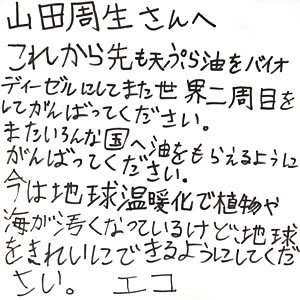 山田周生さんへ
これから先も天ぷら油をバイオ
ディーゼルにしてまた世界二周目を
してがんばってください。
またいろんな国へ油をもらえるように
がんばってください。
今は地球温暖化で植物や
海が汚くなっているけど、地球
をきれいにできるようにしてくだ
さい。 エコ